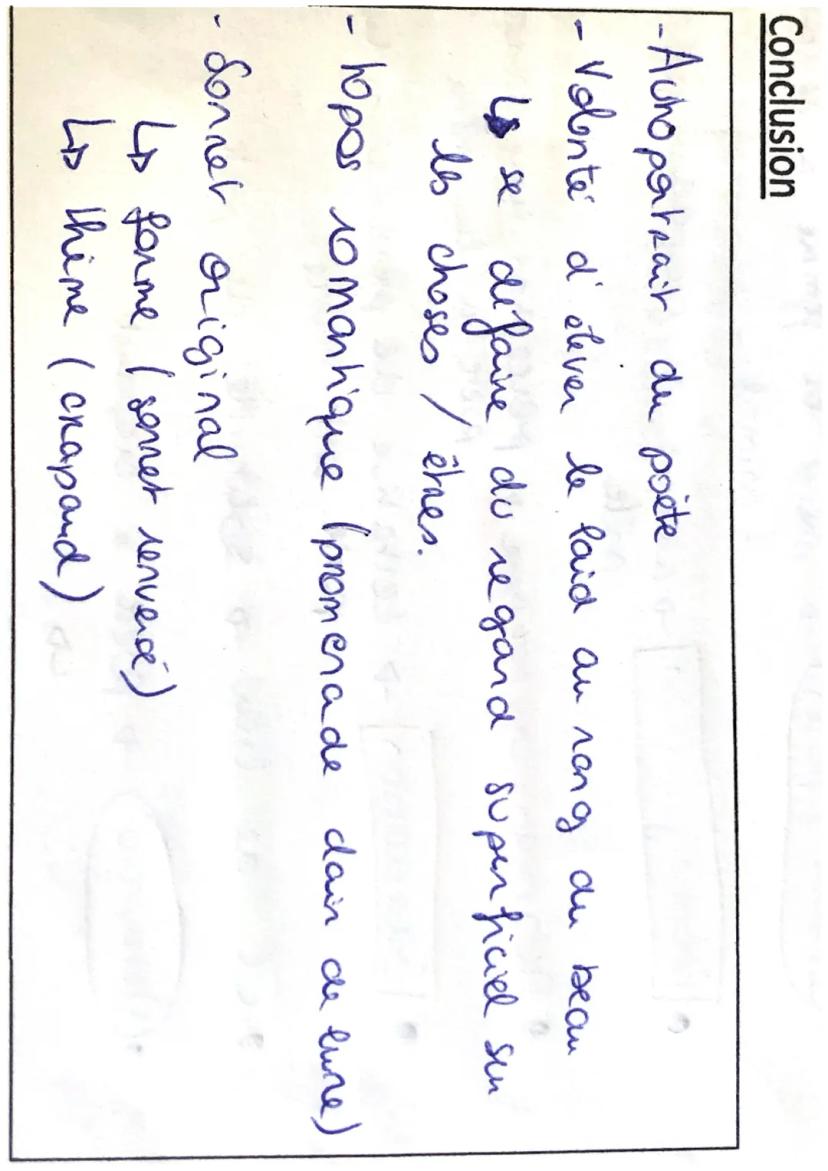 Conclusion
- Autoportrait du poète
- Volonté d'élever le laid au rang du beau
↳ se défaire du regard superficiel sur
les choses / êtres.
- topos romantique (promenade clair de lune)
- Sonnet original
↳ forme (sonnet renversé)
↳ thème (crapaud)